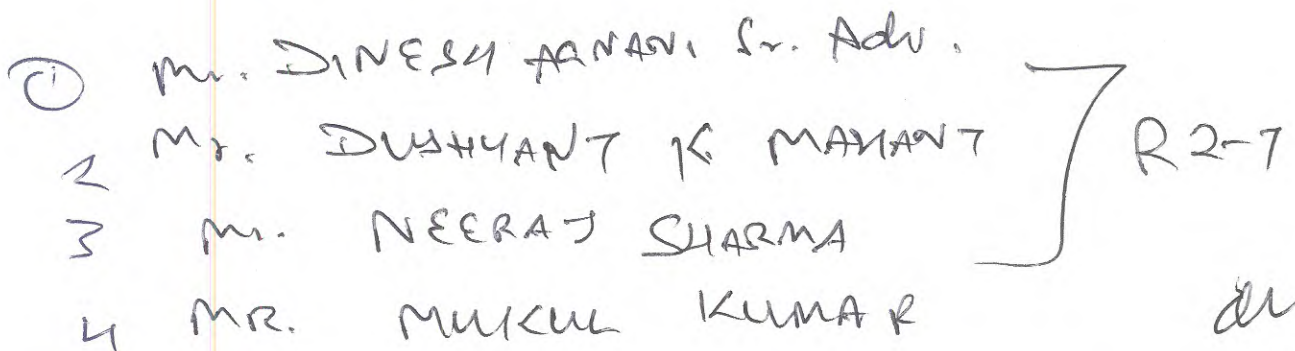 ① Mr. DINESH AGNANI Sr. Adv.
2 Mr. DUSHYANT K MAHANT
3 Mr. NEERAJ SHARMA
R 2-7
4 MR. MUKUL KUMAR